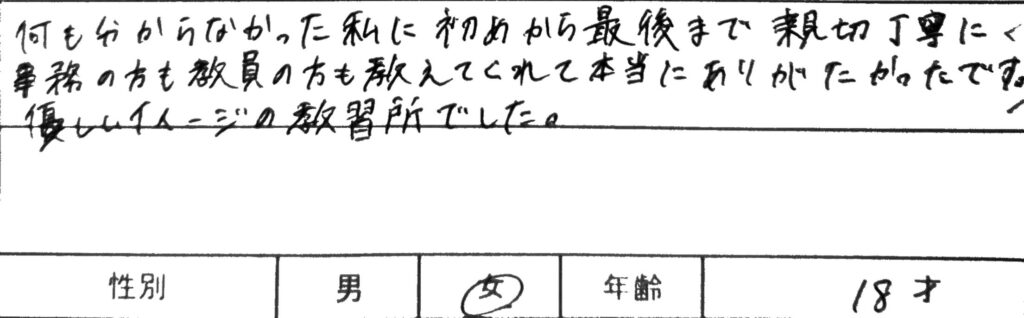 何も分からなかった私に初めから最後まで親切丁寧に
事務の方も教員の方も教えてくれて本当にありがたかったです。
優しいイメージの教習所でした。
性別 男 女 年齢 18才